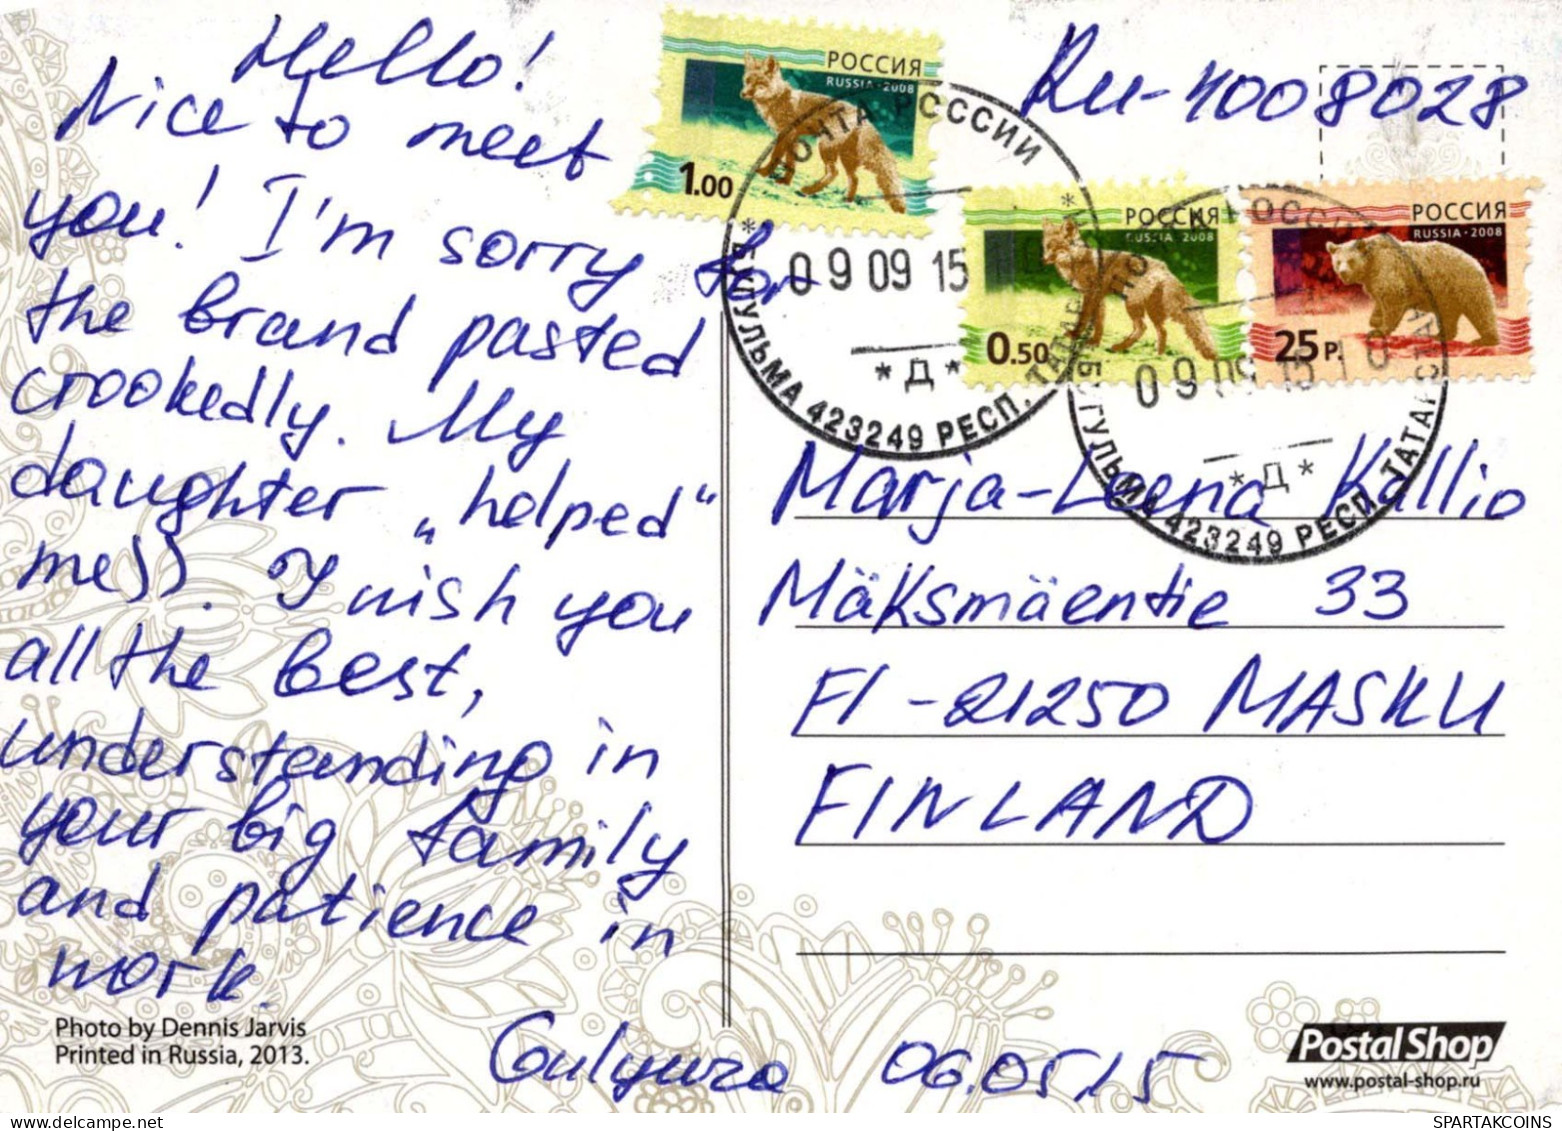 Hello!
Nice to meet
you! I'm sorry for
the brand pasted
crookedly. My
daughter „helped“
mess. I wish you
all the best,
understanding in
your big family
and patience in
work.
Photo by Dennis Jarvis
Printed in Russia, 2013.
06.05.15
РОССИЯ
RUSSIA · 2008
1.00
РОССИЯ
RUSSIA · 2008
0.50
РОССИЯ
RUSSIA · 2008
25 Р.
ПОЧТА РОССИИ
09 09 15
*Д*
БУГУЛЬМА 423249 РЕСП. ТАТАРСТАН
09 09 15
*Д*
БУГУЛЬМА 423249 РЕСП. ТАТАРСТАН
RU-4008028
Marja-Leena Kallio
Mäksmäentie 33
FI-21250 MASKU
FINLAND
Postal Shop
www.postal-shop.ru
SPARTAKCOINS